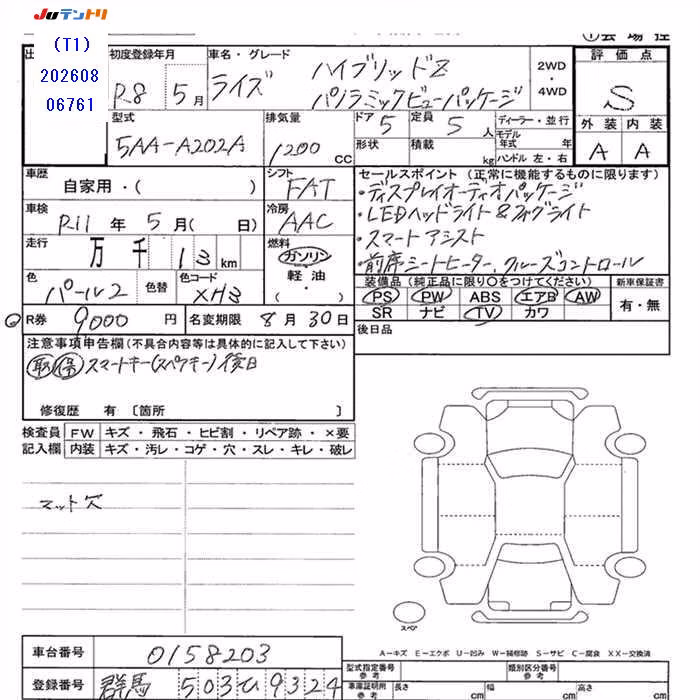 JUテントリ
(T1)
202608
06761
初度登録年月
R8 5月
車名・グレード
ライズ
ハイブリッドZ
パノラミックビューパッケージ
2WD
・
4WD
評価点
S
外装 内装
A A
型式
5AA-A202A
排気量
1200 CC
ドア 5
定員 5 人
形状
積載 kg
ディーラー・並行
モデル
年式 年
ハンドル 左・右
車歴
自家用・( )
シフト
FAT
車検
R11 年 5 月( 日)
冷房
AAC
走行
万 千 13 km
燃料
ガソリン
軽油
・( )
色
パール2
色替
色コード
XH3
セールスポイント (正常に機能するものに限ります)
・ディスプレイオーディオパッケージ
・LEDヘッドライト&フォグライト
・スマートアシスト
・前席シートヒーター、クルーズコントロール
装備品 (純正品に限り○をつけてください)
PS PW ABS エアB AW
SR ナビ TV カワ
新車保証書
有・無
後日品
R券 9000 円
名変期限 8月30日
注意事項申告欄(不具合内容等は具体的に記入して下さい)
取 保 スマートキー(スペアキー)後日
修復歴 有 〔箇所 〕
検査員
記入欄
FW キズ・飛石・ヒビ割・リペア跡・×要
内装 キズ・汚レ・コゲ・穴・スレ・キレ・破レ
マット穴
スペア
A-キズ E-エクボ U-凹み W-補修跡 S-サビ C-腐食 XX-交換済
車台番号 0158203
登録番号 群馬 503 ひ 9324
型式指定番号
参考
類別区分番号
参考
車庫証明用
参考
長さ cm
幅 cm
高さ cm